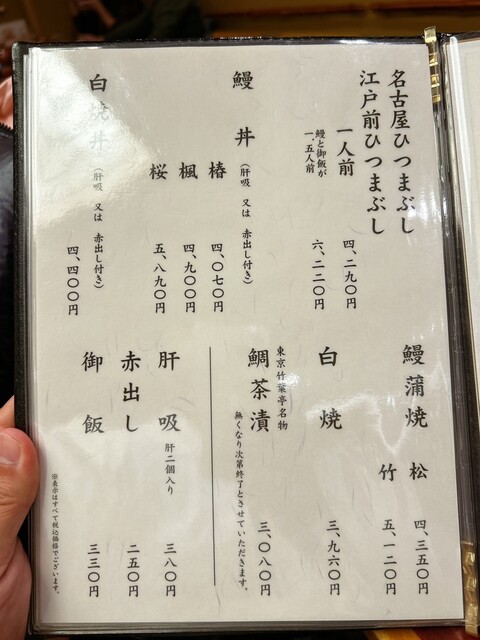 名古屋ひつまぶし
江戸前ひつまぶし
一人前 四、二九〇円
鰻と御飯が
一.五人前 六、二二〇円
鰻丼(肝吸 又は 赤出し付き)
椿 四、〇七〇円
楓 四、九〇〇円
桜 五、八九〇円
白焼丼(肝吸 又は 赤出し付き)
四、四〇〇円
鰻蒲焼 松 四、三五〇円
竹 五、一二〇円
白焼 三、九六〇円
東京竹葉亭名物
鯛茶漬 三、〇八〇円
無くなり次第終了とさせていただきます。
肝吸 肝二個入り 三八〇円
赤出し 二五〇円
御飯 三三〇円
※表示はすべて税込価格でございます。